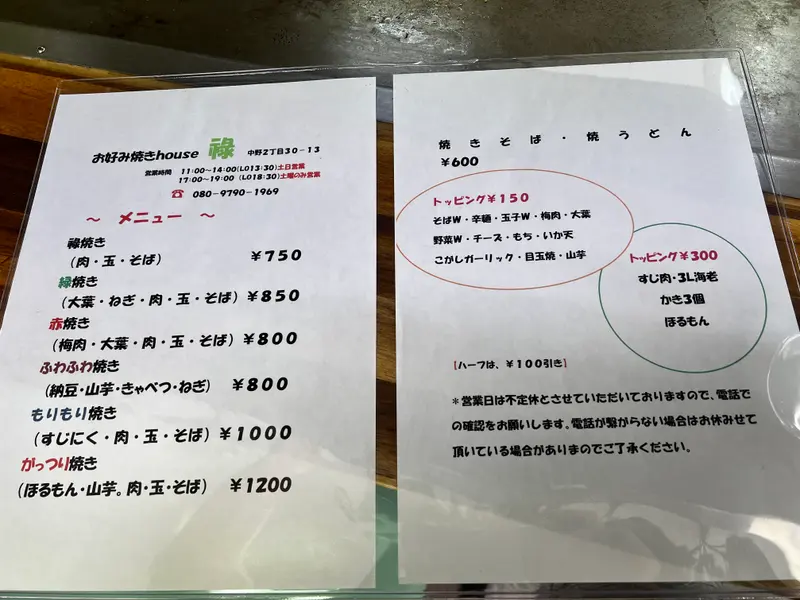 お好み焼きhouse 祿 中野2丁目30-13
営業時間 11:00~14:00(LO13:30)土日営業
17:00~19:00 (LO18:30)土曜のみ営業
☎ 080-9790-1969
~ メニュー ~
祿焼き
(肉・玉・そば) ¥750
緑焼き
(大葉・ねぎ・肉・玉・そば) ¥850
赤焼き
(梅肉・大葉・肉・玉・そば) ¥800
ふわふわ焼き
(納豆・山芋・きゃべつ・ねぎ) ¥800
もりもり焼き
(すじにく・肉・玉・そば) ¥1000
がっつり焼き
(ほるもん・山芋。肉・玉・そば) ¥1200
焼きそば・焼うどん
¥600
トッピング¥150
そばW・辛麺・玉子W・梅肉・大葉
野菜W・チーズ・もち・いか天
こがしガーリック・目玉焼・山芋
トッピング¥300
すじ肉・3L海老
かき3個
ほるもん
【ハーフは、¥100引き】
*営業日は不定休とさせていただいておりますので、電話で
の確認をお願いします。電話が繋がらない場合はお休みせて
頂いている場合がありまのでご了承ください。